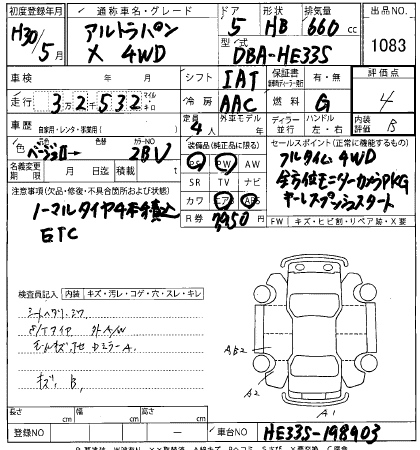 初度登録年月 通称車名・グレード ドア 形状 排気量 出品NO
H30/5月 アルトラパン X 4WD 5 HB 660cc 1083
型式 DBA-HE33S
車検 年 月 シフト IAT 保証書 有・無 評価点 4
走行 3 2 5 3 2 マイル キロ 冷房 AAC 燃料 G
車歴 自家用・レンタ・事業用( ) 定員 4人 外車モデル 年 ディーラー 並行 ハンドル 左・右 内装評価 B
色 ベージュII 色替 カラーNO ZBV 装備品(純正品に限る) セールスポイント(正常に機能するもの)
名義変更期限 月 日 積載 t PS PW AW
SR TV ナビ
カワ エアB ABS
R券 7,950円
フルタイム4WD
全方位モニターカメラPKG
キーレスプッシュスタート
注意事項(欠品・修復・不具合箇所および状態)
ノーマルタイヤ4本積込
ETC
FW キズ・ヒビ割・リペア跡・X要
検査員記入 内装 キズ・汚レ・コゲ・穴・スレ・キレ
シートヘタリ、シワ
キズ B,
AB2
A2
A1
長さ cm 幅 cm 高さ cm
登録NO ― 車台NO HE33S-198903